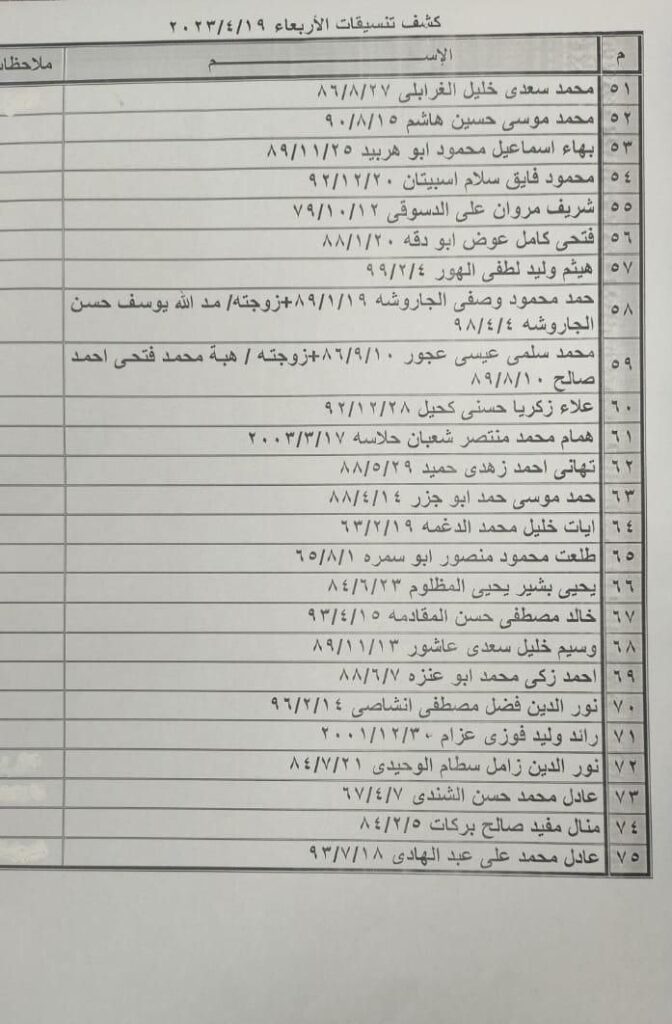 كشف تنسيقات الأربعاء ٢٠٢٣/٤/١٩
م الإســـــــــم ملاحظات
٥١ محمد سعدى خليل الغرابلى ٨٦/٨/٢٧
٥٢ محمد موسى حسين هاشم ٩٠/٨/١٥
٥٣ بهاء اسماعيل محمود ابو هربيد ٨٩/١١/٢٥
٥٤ محمود فايق سلام اسبيتان ٩٢/١٢/٢٠
٥٥ شريف مروان على الدسوقى ٧٩/١٠/١٢
٥٦ فتحى كامل عوض ابو دقه ٨٨/١/٢٠
٥٧ هيثم وليد لطفى الهور ٩٩/٢/٤
٥٨ حمد محمود وصفى الجاروشه ٨٩/١/١٩+زوجته/ مد الله يوسف حسن
الجاروشه ٩٨/٤/٤
٥٩ محمد سلمى عيسى عجور ٨٦/٩/١٠+زوجته / هبة محمد فتحى احمد
صالح ٨٩/٨/١٠
٦٠ علاء زكريا حسنى كحيل ٩٢/١٢/٢٨
٦١ همام محمد منتصر شعبان حلاسه ٢٠٠٣/٣/١٧
٦٢ تهانى احمد زهدى حميد ٨٨/٥/٢٩
٦٣ حمد موسى حمد ابو جزر ٨٨/٤/١٤
٦٤ ايات خليل محمد الدغمه ٦٣/٢/١٩
٦٥ طلعت محمود منصور ابو سمره ٦٥/٨/١
٦٦ يحيى بشير يحيى المظلوم ٨٤/٦/٢٣
٦٧ خالد مصطفى حسن المقادمه ٩٣/٤/١٥
٦٨ وسيم خليل سعدى عاشور ٨٩/١١/١٣
٦٩ احمد زكى محمد ابو عنزه ٨٨/٦/٧
٧٠ نور الدين فضل مصطفى انشاصى ٩٦/٢/١٤
٧١ رائد وليد فوزى عزام ٢٠٠١/١٢/٣٠
٧٢ نور الدين زامل سطام الوحيدى ٨٤/٧/٢١
٧٣ عادل محمد حسن الشندى ٦٧/٤/٧
٧٤ منال مفيد صالح بركات ٨٤/٢/٥
٧٥ عادل محمد على عبد الهادى ٩٣/٧/١٨